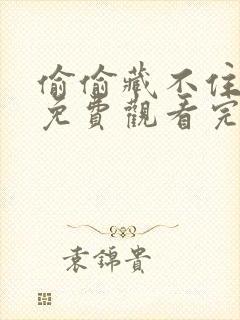 偷偷藏不住
免費觀看完
袁錦貴